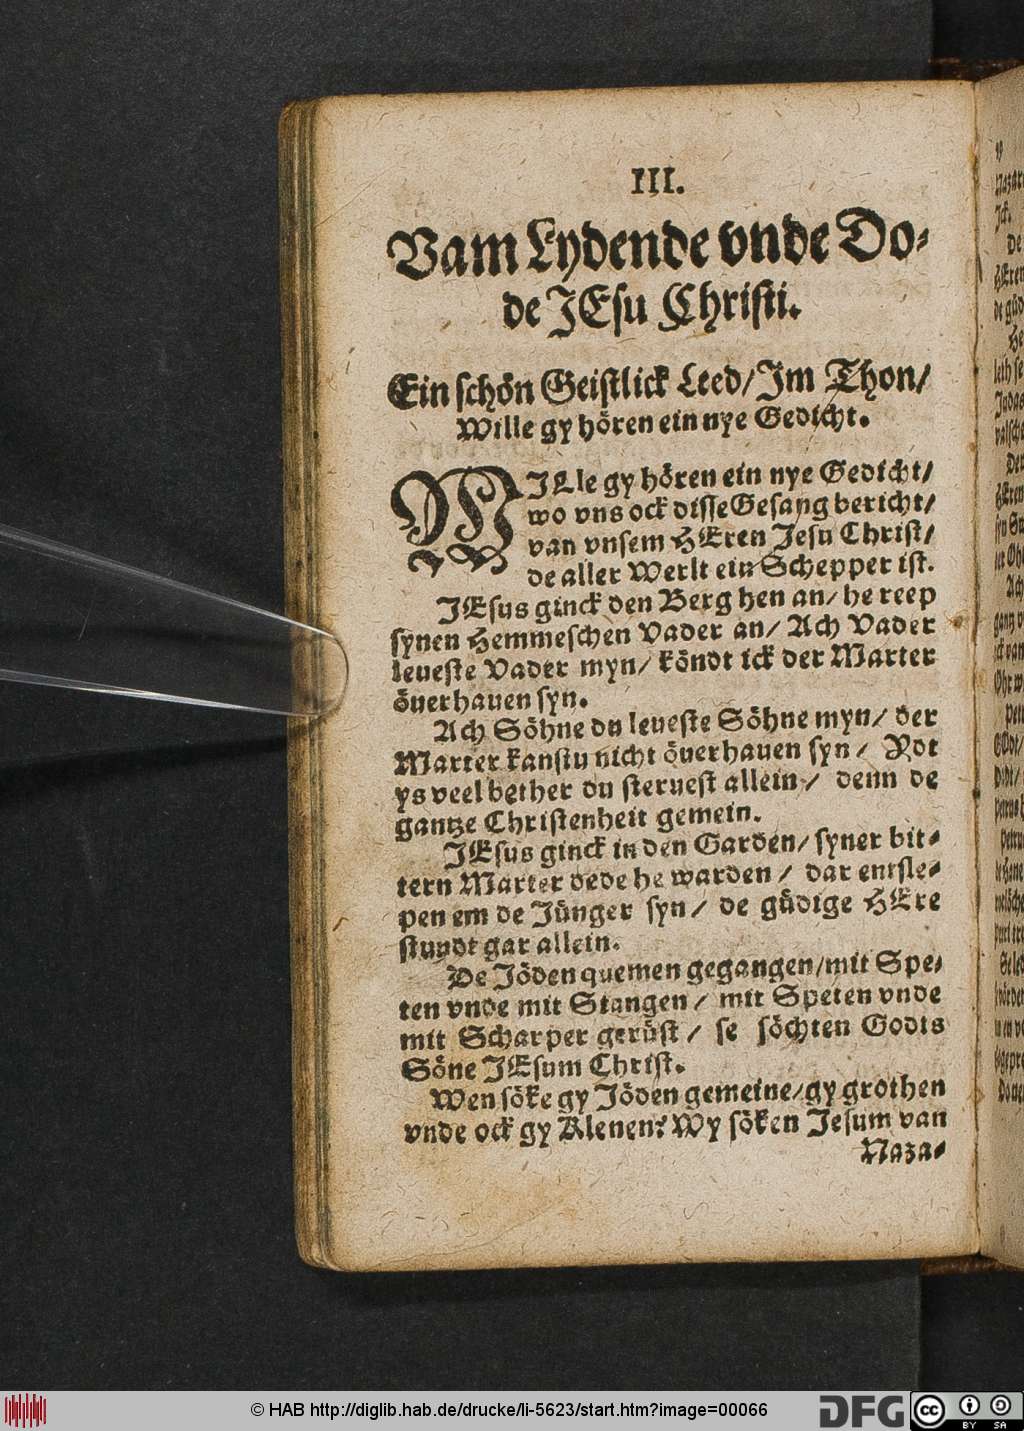 III.
Vam Lydende vnde Do⸗
de JEsu Christi.
Ein schön Geistlick Leed/ Im Thon/
Wille gy hören ein nye Gedicht.
WILle gy hören ein nye Gedicht/
wo vns ock disse Gesang bericht/
van vnsem HEren Jesu Christ/
de aller Werlt ein Schepper ist.
JEsus ginck den Berg hen an/ he reep
synen Hemmeschen Vader an/ Ach Vader
leueste Vader myn/ köndt ick der Marter
öuerhauen syn.
Ach Söhne du leueste Söhne myn/ der
Marter kanstu nicht öuerhauen syn/ Idt
ys veel bether du steruest allein/ denn de
gantze Christenheit gemein.
JEsus ginck in den Garden/ syner bit⸗
tern Marter dede he warden/ dar entsle⸗
pen em de Jünger syn/ de güdige HEre
stundt gar allein.
De Jöden quemen gegangen/ mit Spe⸗
ten vnde mit Stangen/ mit Speten vnde
mit Scharper gerüst/ se söchten Godts
Söne JEsum Christ.
Wen söke gy Jöden gemeine/ gy grothen
vnde ock gy Klenen? Wy söken Jesum van
Naza⸗
© HAB http://diglib.hab.de/drucke/li-5623/start.htm?image=00066
DFG
cc
BY SA